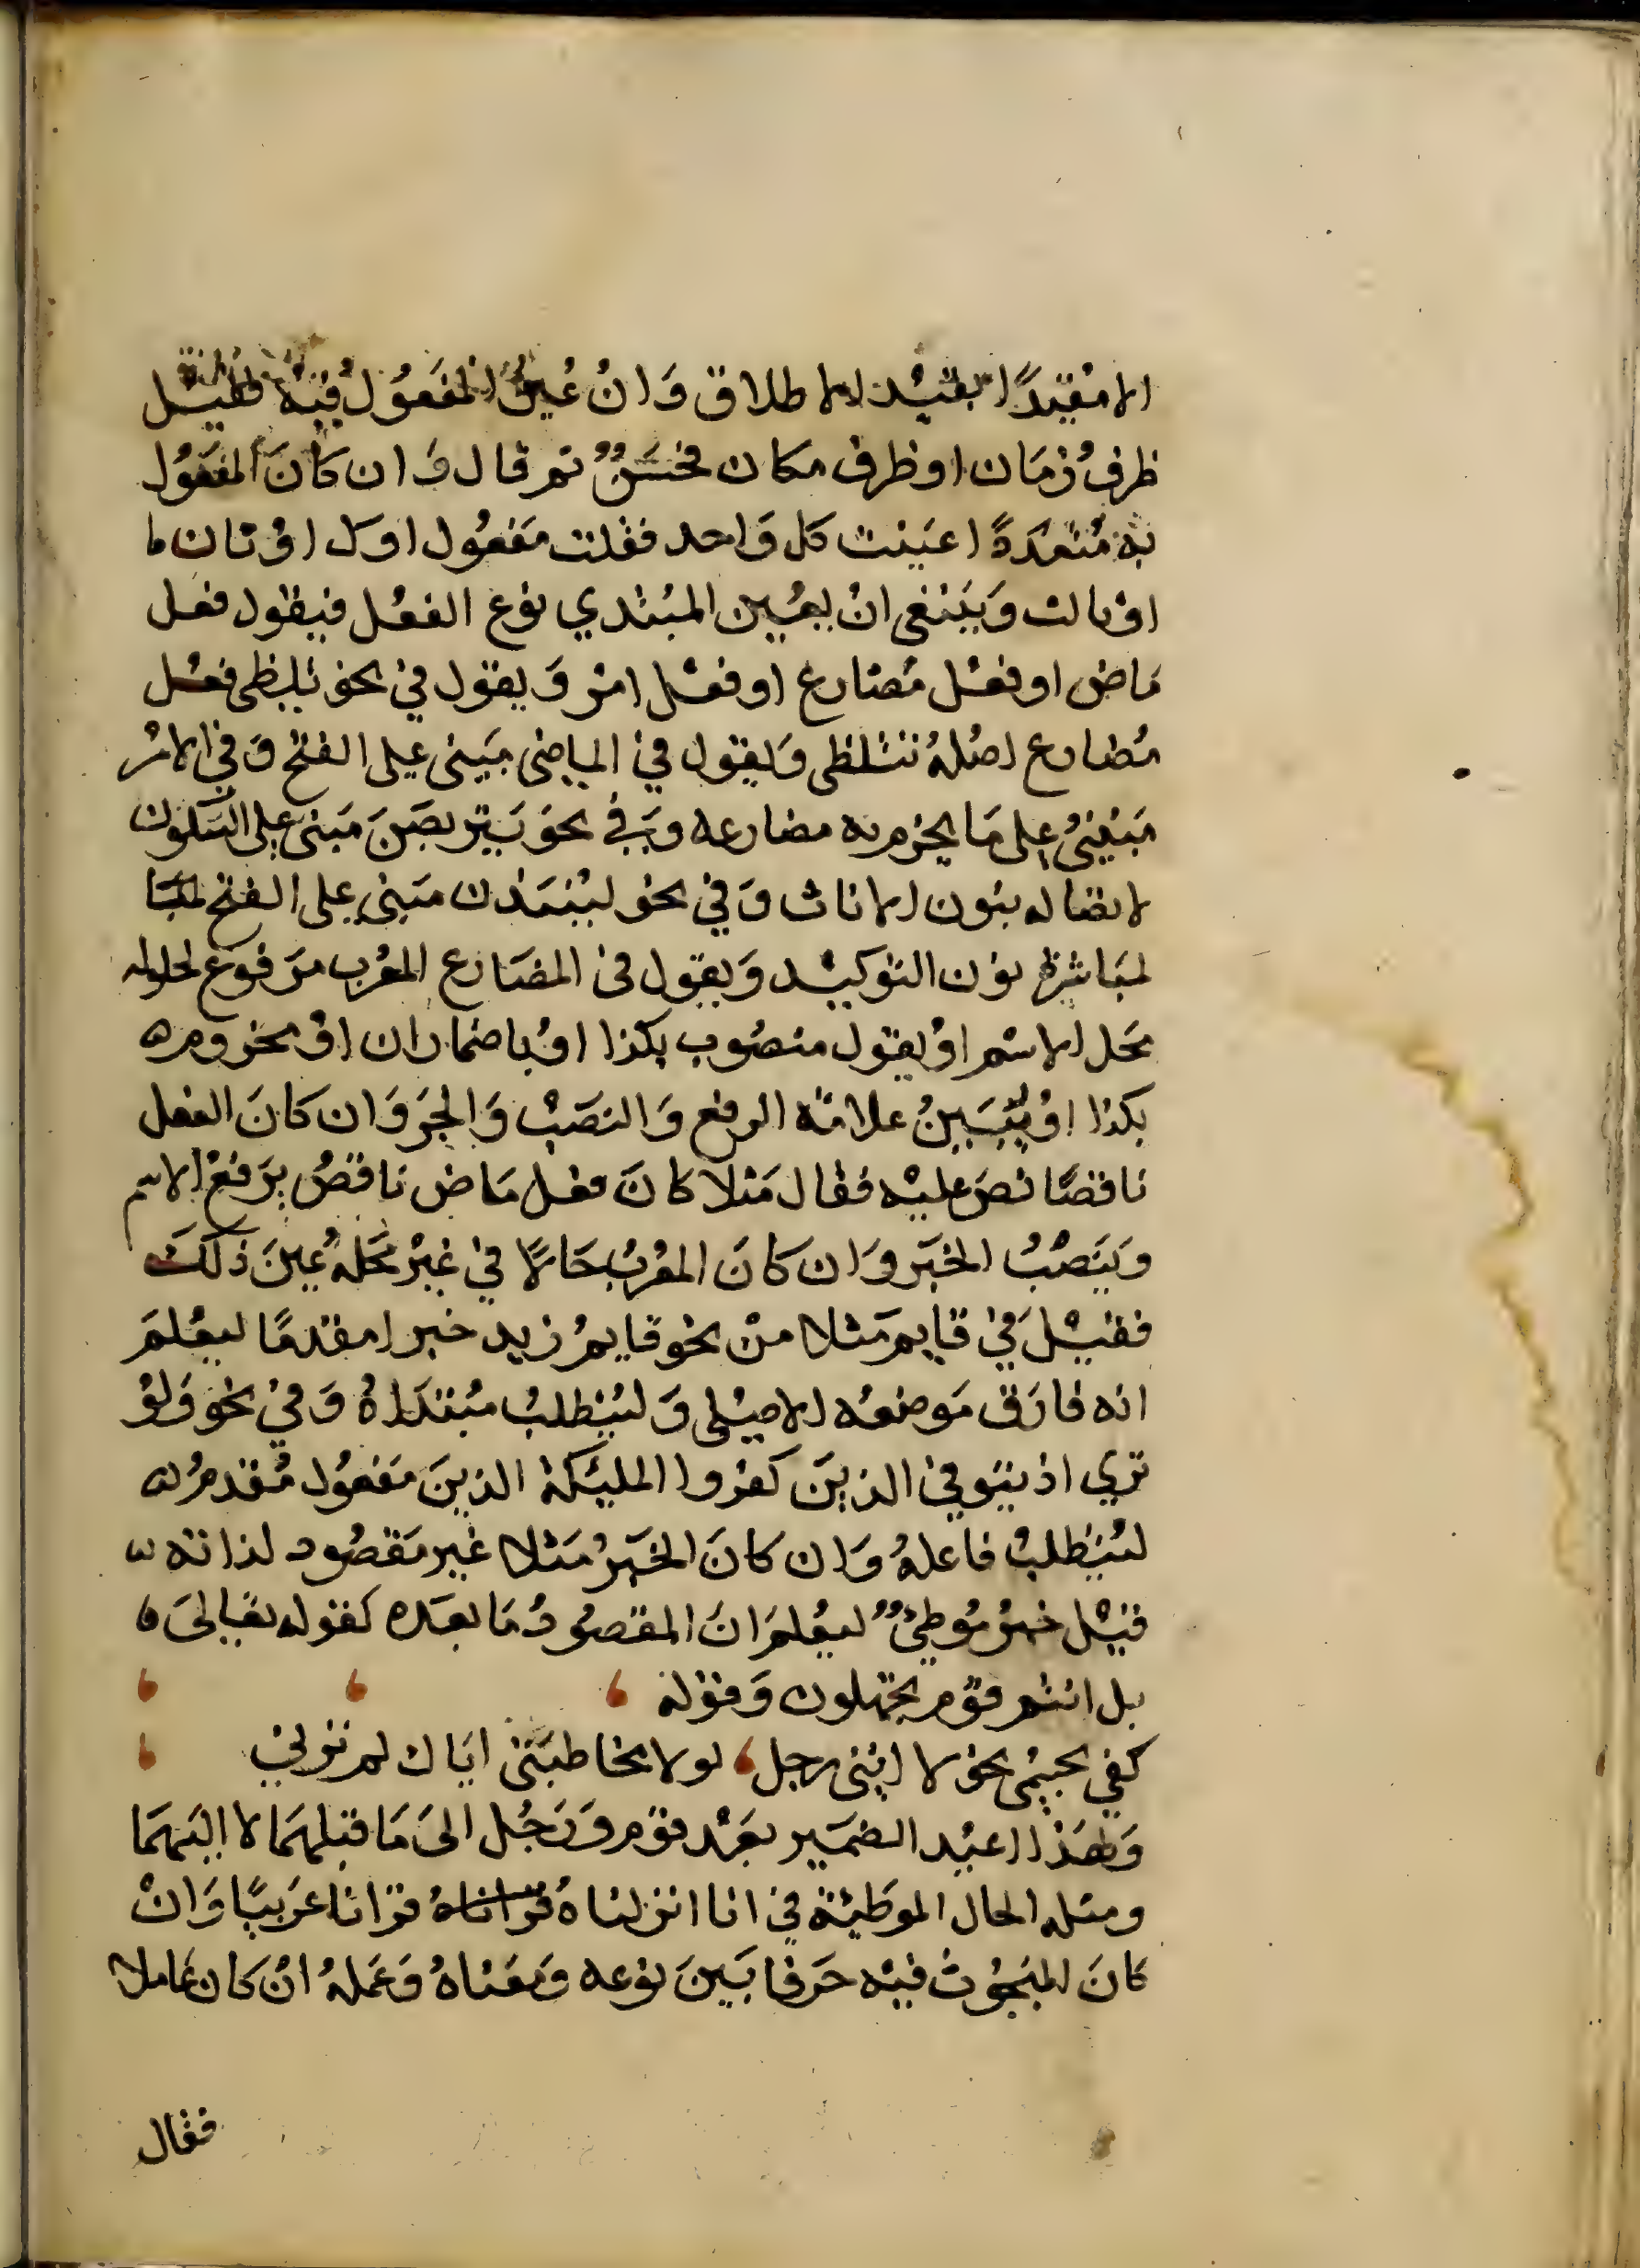 الا مقيدًا بقيد الاطلاق وَانْ عُينَ المفعَوُل فيْه فقيْل
ظرفُ زمَان او ظرف مكان فحسَنٌ ثم قال وَان كانَ المفعَوُل
به مُتعددًا عيَنت كل وَاحد فقلت مَفعُول اول اوْ ثان
اوْ ثالث وَيَنبغى انْ يعُيين المبُتدي نوْع الفعْل فيقول فعل
مَاض او فعْل مُضارع او فعْل امرْ وَيقول في نحو تلظى فعْل
مُضارع اصْلهُ تتلظى وَيقول في الماضى مبَينى على الفتح وَفي الامرْ
مَبنىُ على مَا يجزم به مضارعه وَفي نحوَ يَتربصَنَ مَبنى على السَكون
لاتصاله بنون الاناث وَفي نحو ليُنبَذن مَبنى على الفتح
لمبَاشرة نوْن التوكيْد وَيقول فى المضَارع المعُرب مرَفوع لحلوله
محَل الاسْم اوْ يقول منصُوب بكذا اوْ باضمار ان اوْ مجزوم
بكذا اوْ يُبَينُ علامَة الرفع وَالنصَبْ وَالجرَ وَان كانَ الفعل
ناقصًا نصَ عليْه فقال مَثلا كانَ فعل مَاض ناقصُ يرَفعْ الاسم
وَيَنصْبُ الخبَر وَان كانَ المعُربُ حَالًا في غيْر محَلهُ عينَ ذلكَ
فقيْل في قايم مَثلا منْ نحو قايمُ زيد خبر مقدمًا ليعُلمَ
انه فارَق مَوضعُه الاصيْلى وَليُتطلبُ مبُتداهُ وَفي نحوَ وَلوْ
تري اذ يتوفي الذينَ كفروا المليَكة الذينَ مَفعُول مُقدمُ
ليُتطلبْ فاعلهُ وَان كانَ الخبَرُ مَثلا غيْر مَقصُود لذاته
قيْل خبرُ مُوطئٌ ليعُلمَ انَ المقصُودُ مَا بعدَه كقوله تعَالىَ
بل انتم قوْم تجهلون وَقوْله
كفي بجسْمى نحوْلا اننى رجل لولا مخاطبَتى ايَاك لم ترنيْ
وَلهذا اعيْد الضمَير بعَدْ قوْم وَرَجُل الىَ مَا قبلهمَا لا اليَهمَا
ومثله الحال الموَطيْة في انا انزلناهُ قراناه قرانا عَربيًا وَانْ
كانَ المبَحُوث فيْه حَرفا بَينَ نوْعه وَمعَناهُ وَعَملهُ انْ كان عَاملا
فقال